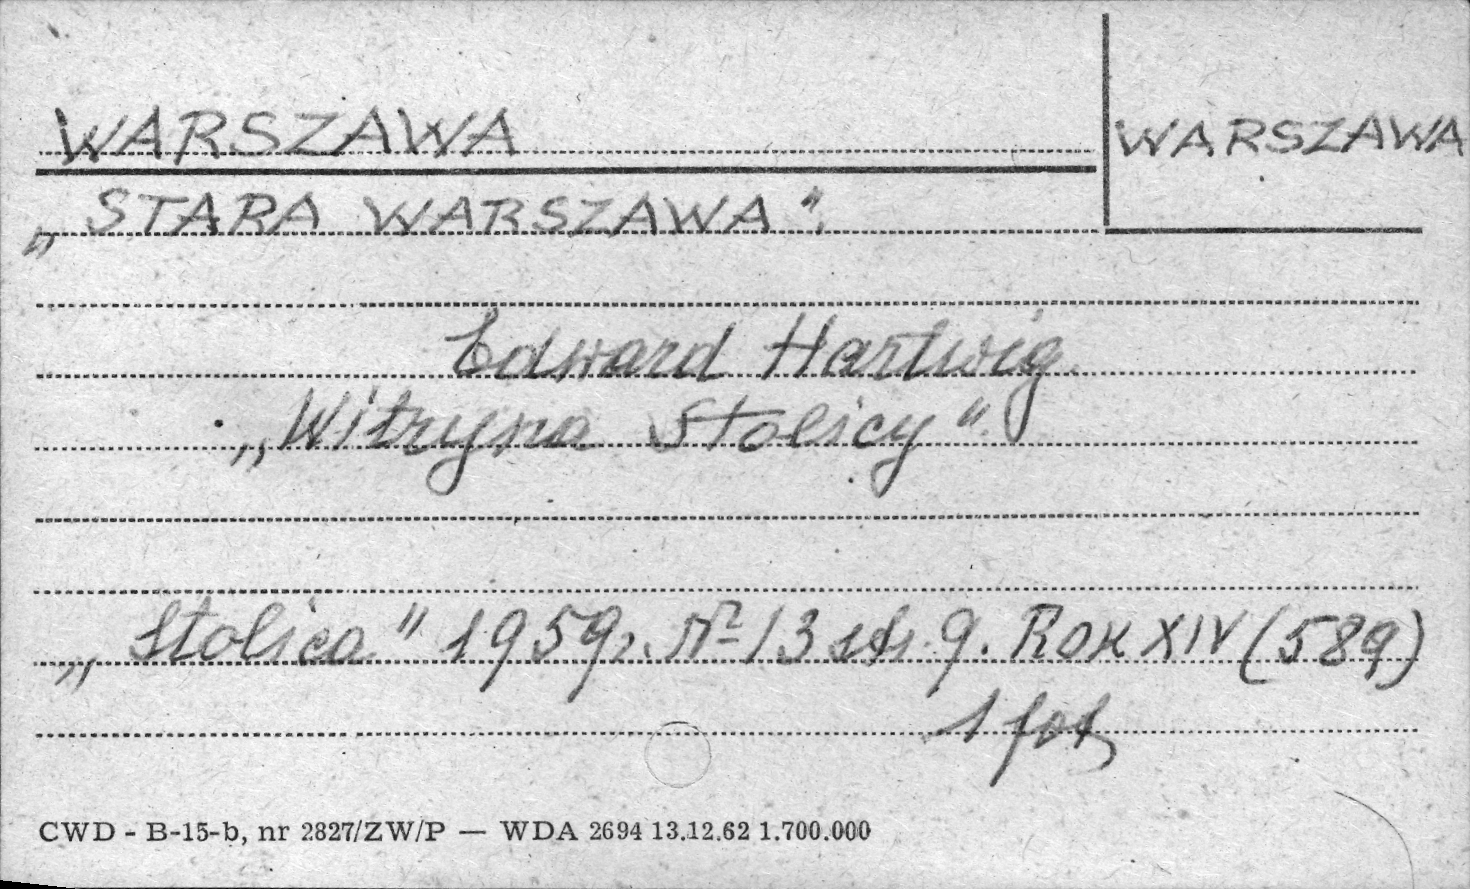 WARSZAWA
WARSZAWA
„STARA WARSZAWA".
Edward Hartwig
„Witryna Stolicy"
„Stolica" 1959r. № 13 str. 9. Rok XIV (589)
1 fot.
CWD - B-15-b, nr 2827/ZW/P — WDA 2694 13.12.62 1.700.000